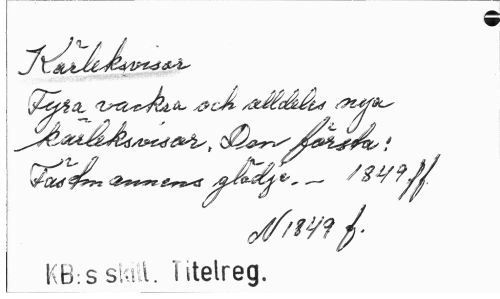 Kärleksvisor
Fyra vackra och alldeles nya
kärleksvisor. Den första:
Fästmannens glädje. – 1849 ff.
N 1849 f.
KB:s skill. Titelreg.